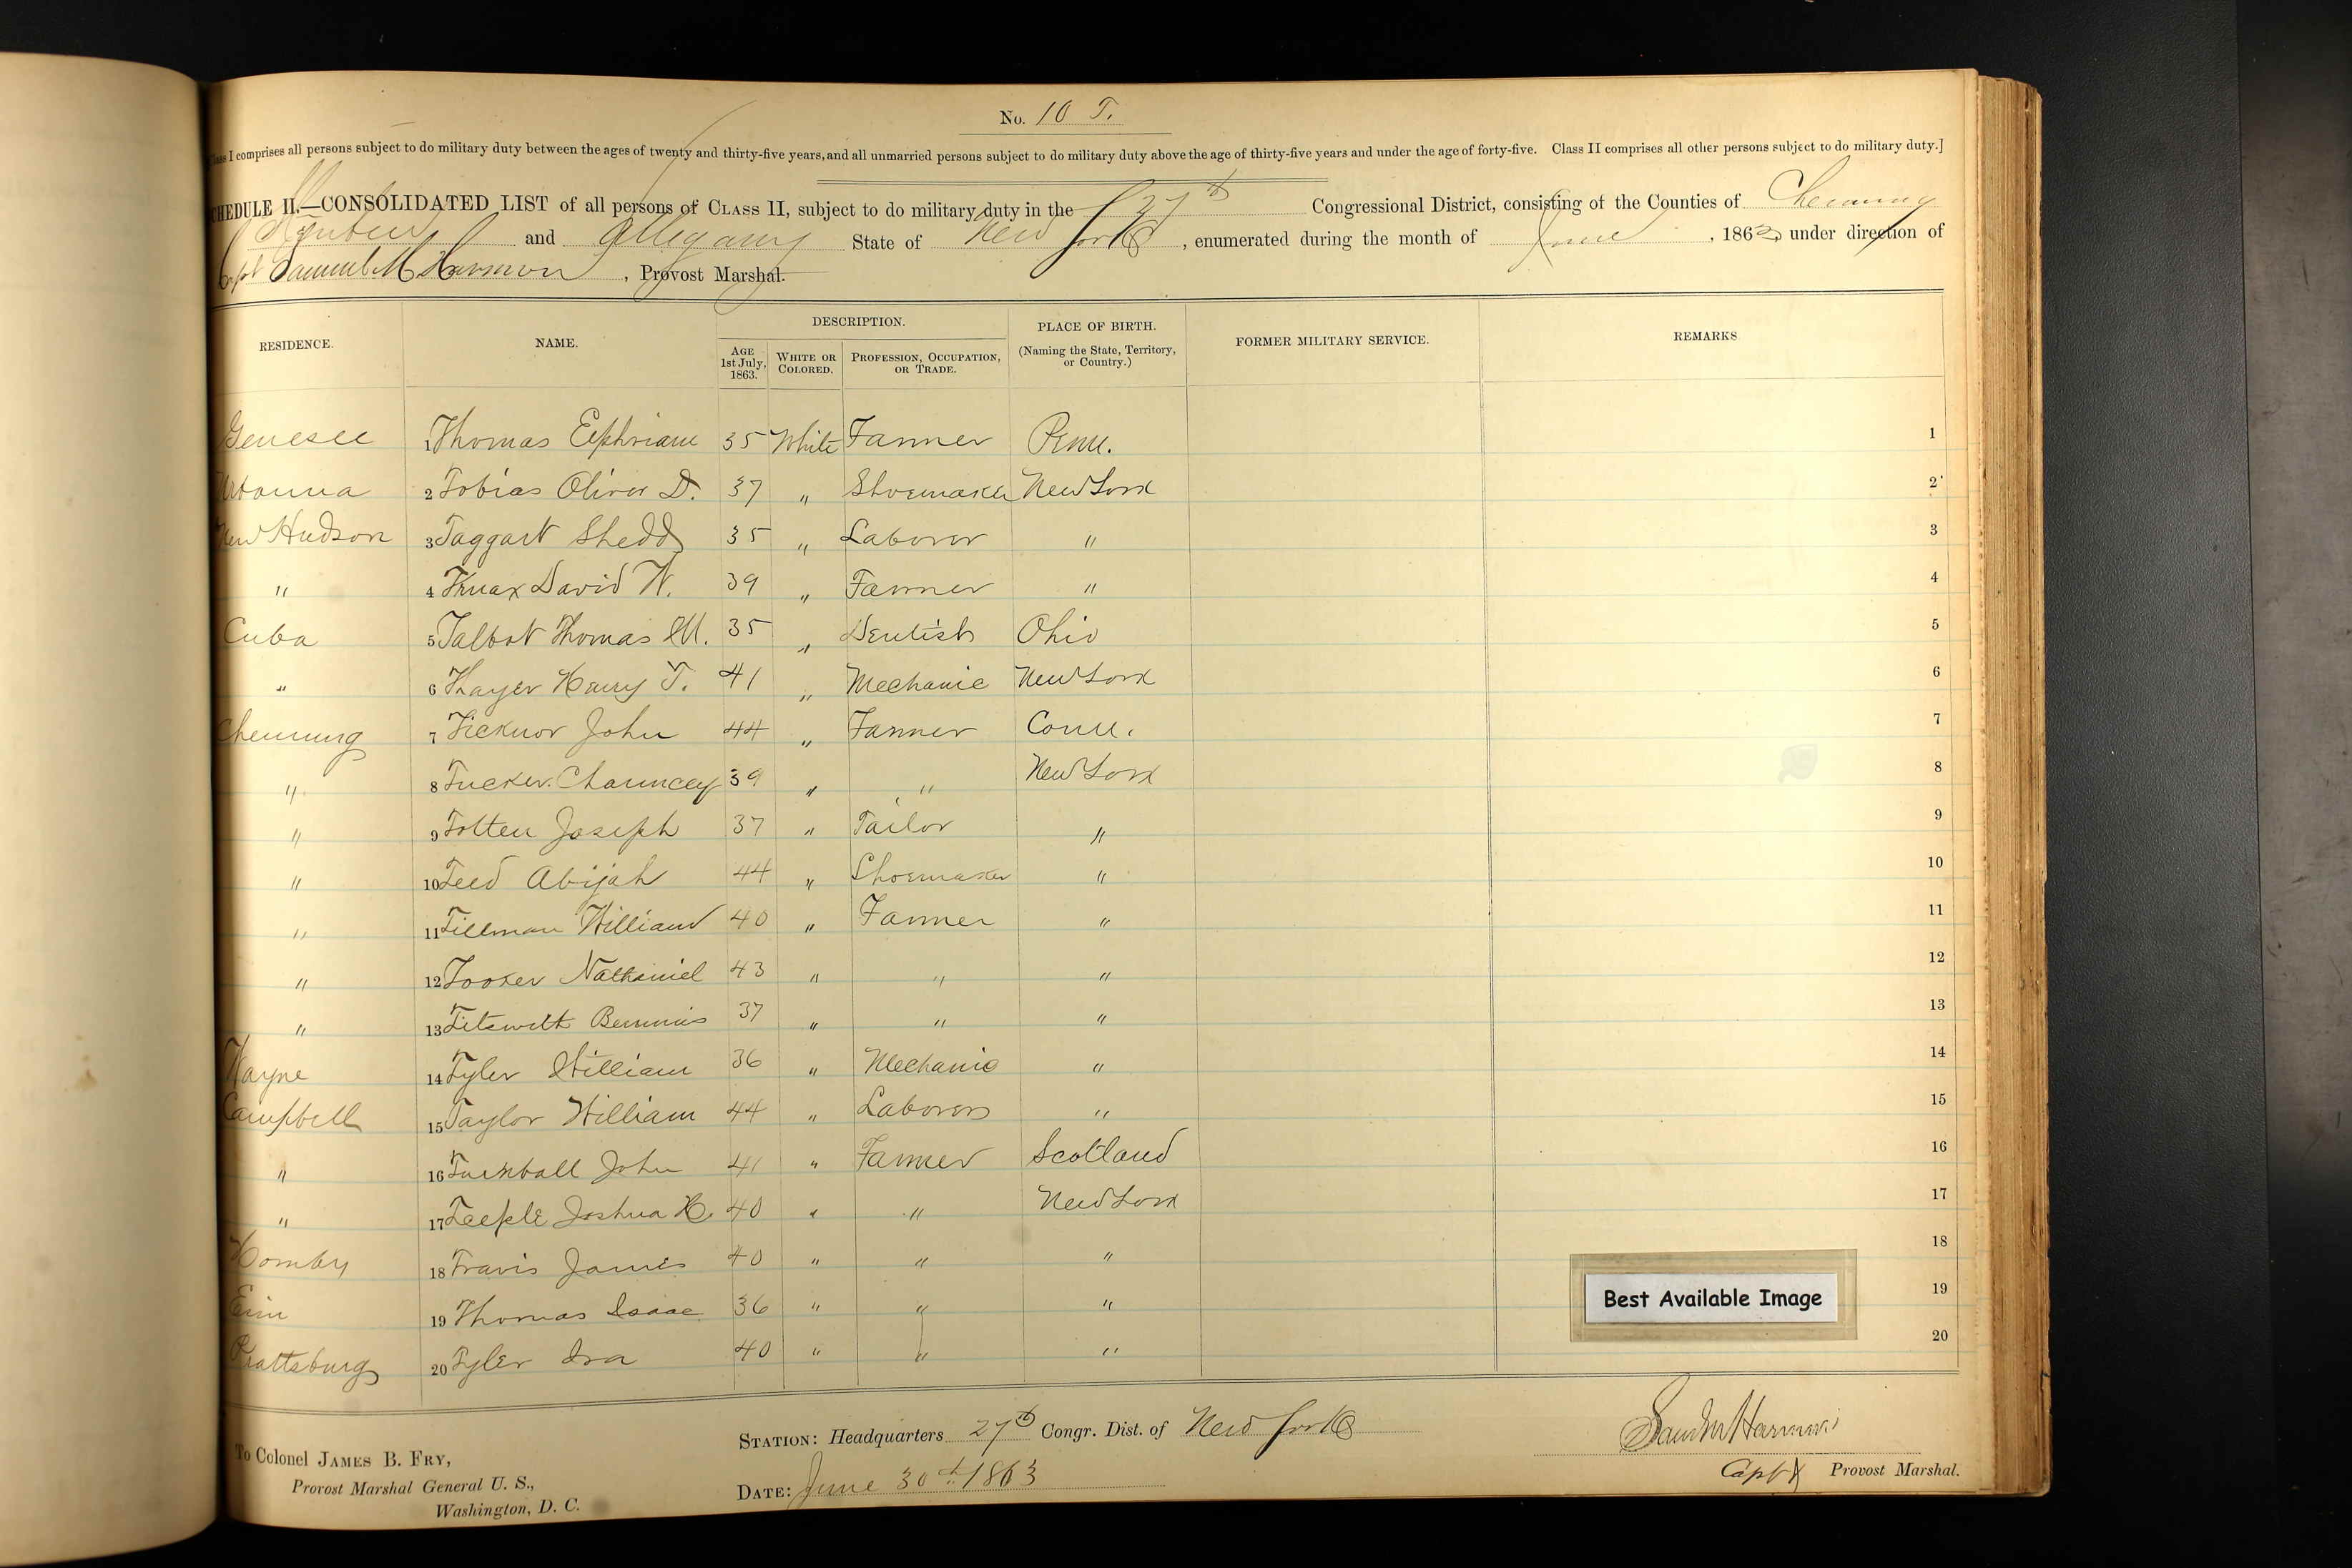 No. 10 T.
Class I comprises all persons subject to do military duty between the ages of twenty and thirty-five years, and all unmarried persons subject to do military duty above the age of thirty-five years and under the age of forty-five. Class II comprises all other persons subject to do military duty.]
SCHEDULE II.—CONSOLIDATED LIST of all persons of CLASS II, subject to do military duty in the 27th Congressional District, consisting of the Counties of Chemung
Steuben and Allegany State of New York, enumerated during the month of June, 1863, under direction of
Capt Samuel M Harmon, Provost Marshal.
RESIDENCE. NAME. DESCRIPTION. PLACE OF BIRTH. FORMER MILITARY SERVICE. REMARKS
AGE 1st July, 1863. WHITE OR COLORED. PROFESSION, OCCUPATION, OR TRADE. (Naming the State, Territory, or Country.)
Genesee 1 Thomas Ephriam 35 White Farmer Penn. 1
Urbanna 2 Tobias Oliver D. 37 " Shoemaker New York 2
New Hudson 3 Taggart Shedd 35 " Laborer " 3
" 4 David W. 39 " Farmer " 4
Cuba 5 Talbot Thomas M. 35 " Dentist Ohio 5
" 6 Thayer Henry T. 41 " Mechanic New York 6
Chemung 7 Ticknor John 44 " Farmer Conn. 7
" 8 Tucker Chauncey 39 " " New York 8
" 9 Totten Joseph 37 " Tailor " 9
" 10 Teed Abijah 44 " Shoemaker " 10
" 11 Tillman William 40 " Farmer " 11
" 12 Tooker Nathaniel 43 " " " 12
" 13 37 " " " 13
Wayne 14 Tyler William 36 " Mechanic " 14
Campbell 15 Taylor William 44 " Laborer " 15
" 16 Turnball John 41 " Farmer Scotland 16
" 17 Teeple Joshua H. 40 " " New York 17
Hornby 18 Travis James 40 " " " 18
Erin 19 Thomas Isaac 36 " " " 19
Prattsburg 20 Tyler Ira 40 " " " 20
Best Available Image
STATION: Headquarters 27th Congr. Dist. of New York
DATE: June 30th 1863
To Colonel JAMES B. FRY,
Provost Marshal General U. S.,
Washington, D. C.
Sam M Harmon
Capt & Provost Marshal.